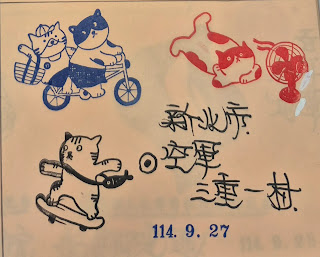 新北市.
空軍
三重一村.
114. 9. 27